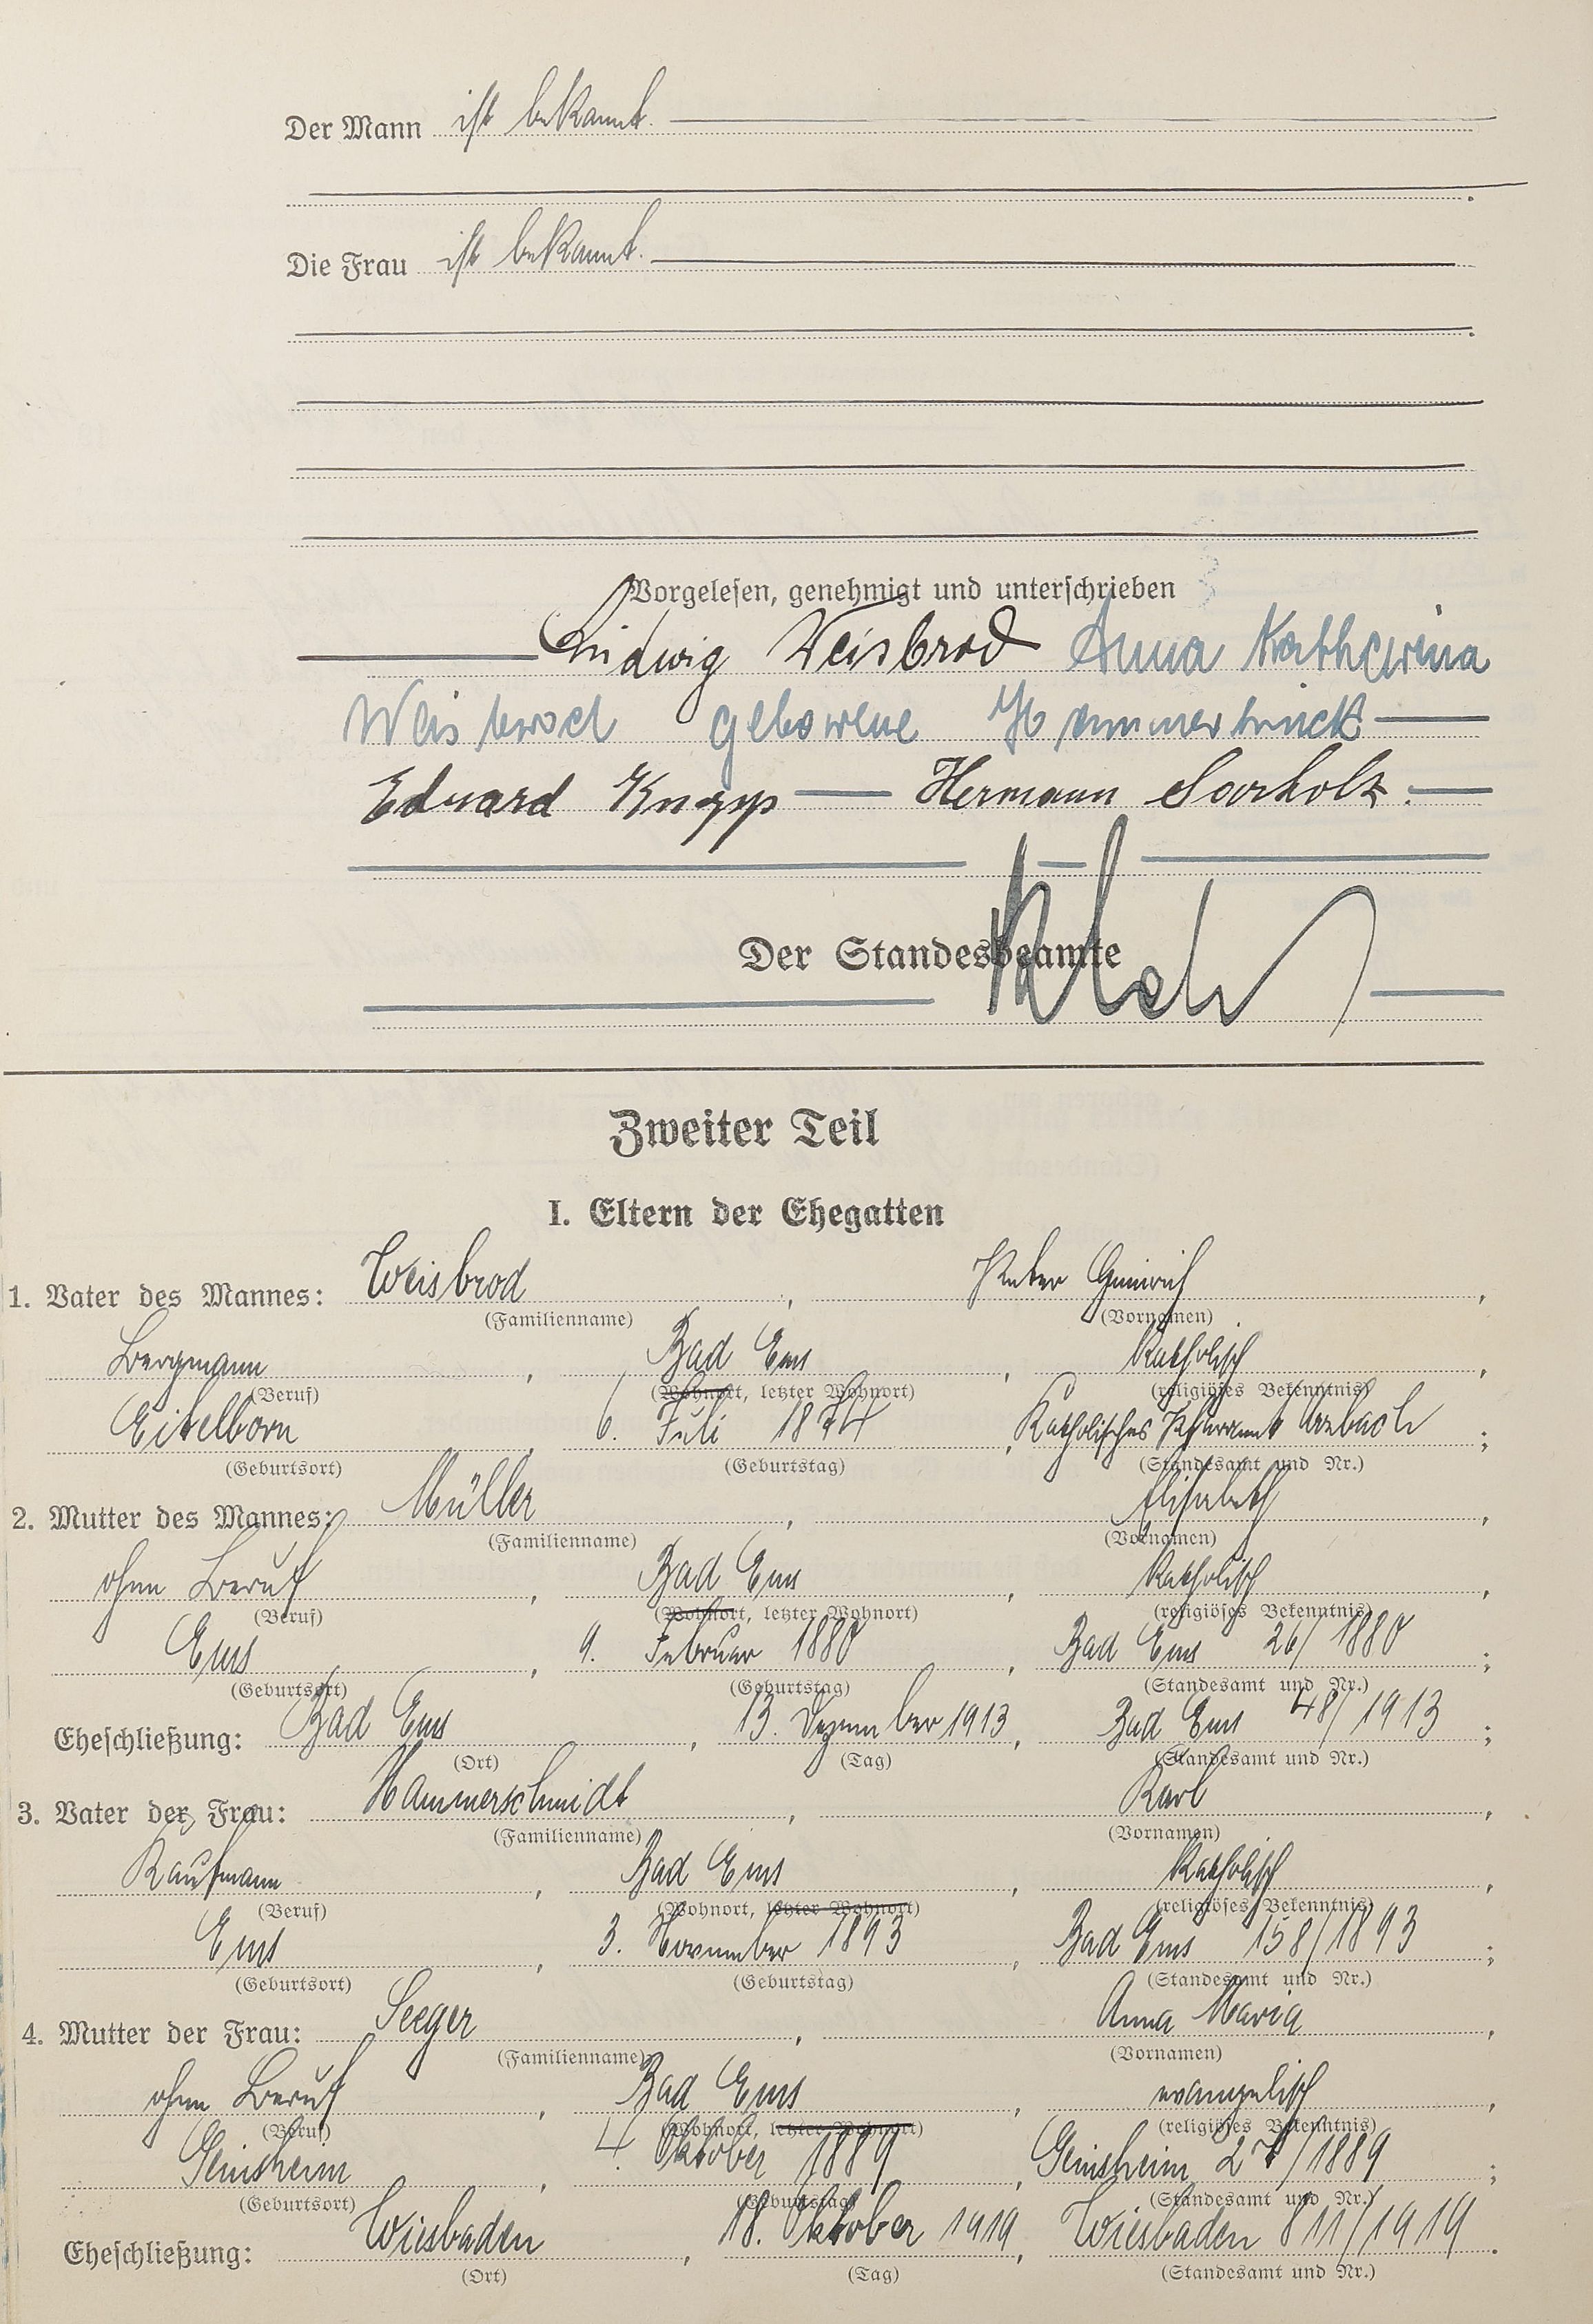 Der Mann ist bekannt.
Die Frau ist bekannt.
Vorgelesen, genehmigt und unterschrieben
Ludwig Weisbrod Anna Katherina
Weisbrod geborene
Eduard Knopp Hermann
Der Standesbeamte
Zweiter Teil
I. Eltern der Ehegatten
1. Vater des Mannes: Weisbrod, Peter Heinrich,
(Familienname) (Vornamen)
Bergmann, Bad Ems, Katholisch,
(Beruf) (Wohnort, letzter Wohnort) (religiöses Bekenntnis)
Eitelborn, 6. Juli 1874, Katholisches Pfarramt Arzbach;
(Geburtsort) (Geburtstag) (Standesamt und Nr.)
2. Mutter des Mannes: Müller, Elisabeth,
(Familienname) (Vornamen)
ohne Beruf, Bad Ems, Katholisch,
(Beruf) (Wohnort, letzter Wohnort) (religiöses Bekenntnis)
Ems, 9. Februar 1880, Bad Ems 26/1880;
(Geburtsort) (Geburtstag) (Standesamt und Nr.)
Eheschließung: Bad Ems, 13. Dezember 1913, Bad Ems 48/1913;
(Ort) (Tag) (Standesamt und Nr.)
3. Vater der Frau: Hammerschmidt, Karl,
(Familienname) (Vornamen)
Kaufmann, Bad Ems, Katholisch,
(Beruf) (Wohnort, letzter Wohnort) (religiöses Bekenntnis)
Ems, 3. November 1893, Bad Ems 158/1893;
(Geburtsort) (Geburtstag) (Standesamt und Nr.)
4. Mutter der Frau: Seeger, Anna Maria,
(Familienname) (Vornamen)
ohne Beruf, Bad Ems, evangelisch,
(Beruf) (Wohnort, letzter Wohnort) (religiöses Bekenntnis)
Geinsheim, 4. Oktober 1889, Geinsheim 27/1889;
(Geburtsort) (Geburtstag) (Standesamt und Nr.)
Eheschließung: Wiesbaden, 18. Oktober 1919, Wiesbaden 811/1919.
(Ort) (Tag) (Standesamt und Nr.)